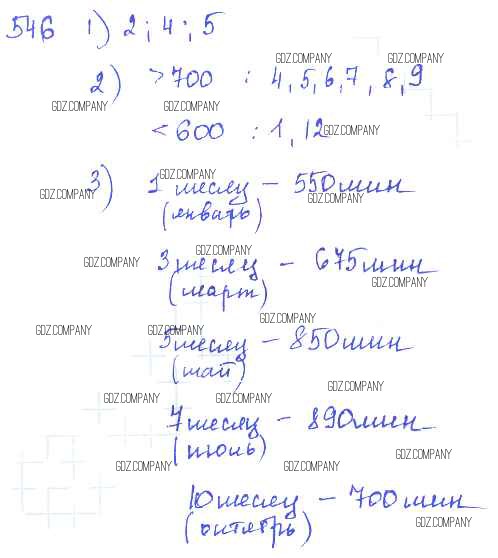 546 1) 2; 4; 5
GDZ.COMPANY GDZ.COMPANY
2) >700 : 4, 5, 6, 7, 8, 9
GDZ.COMPANY GDZ.COMPANY
<600 : 1, 12
GDZ.COMPANY
GDZ.COMPANY
3) 1 месяц - 550 мин
GDZ.COMPANY GDZ.COMPANY
(январь)
GDZ.COMPANY
3 месяц - 675 мин
GDZ.COMPANY GDZ.COMPANY
(март)
GDZ.COMPANY
GDZ.COMPANY GDZ.COMPANY
5 месяц - 850 мин
(май)
GDZ.COMPANY
GDZ.COMPANY GDZ.COMPANY
7 месяц - 890 мин
(июль)
GDZ.COMPANY
GDZ.COMPANY GDZ.COMPANY
10 месяц - 700 мин
(октябрь)
GDZ.COMPANY